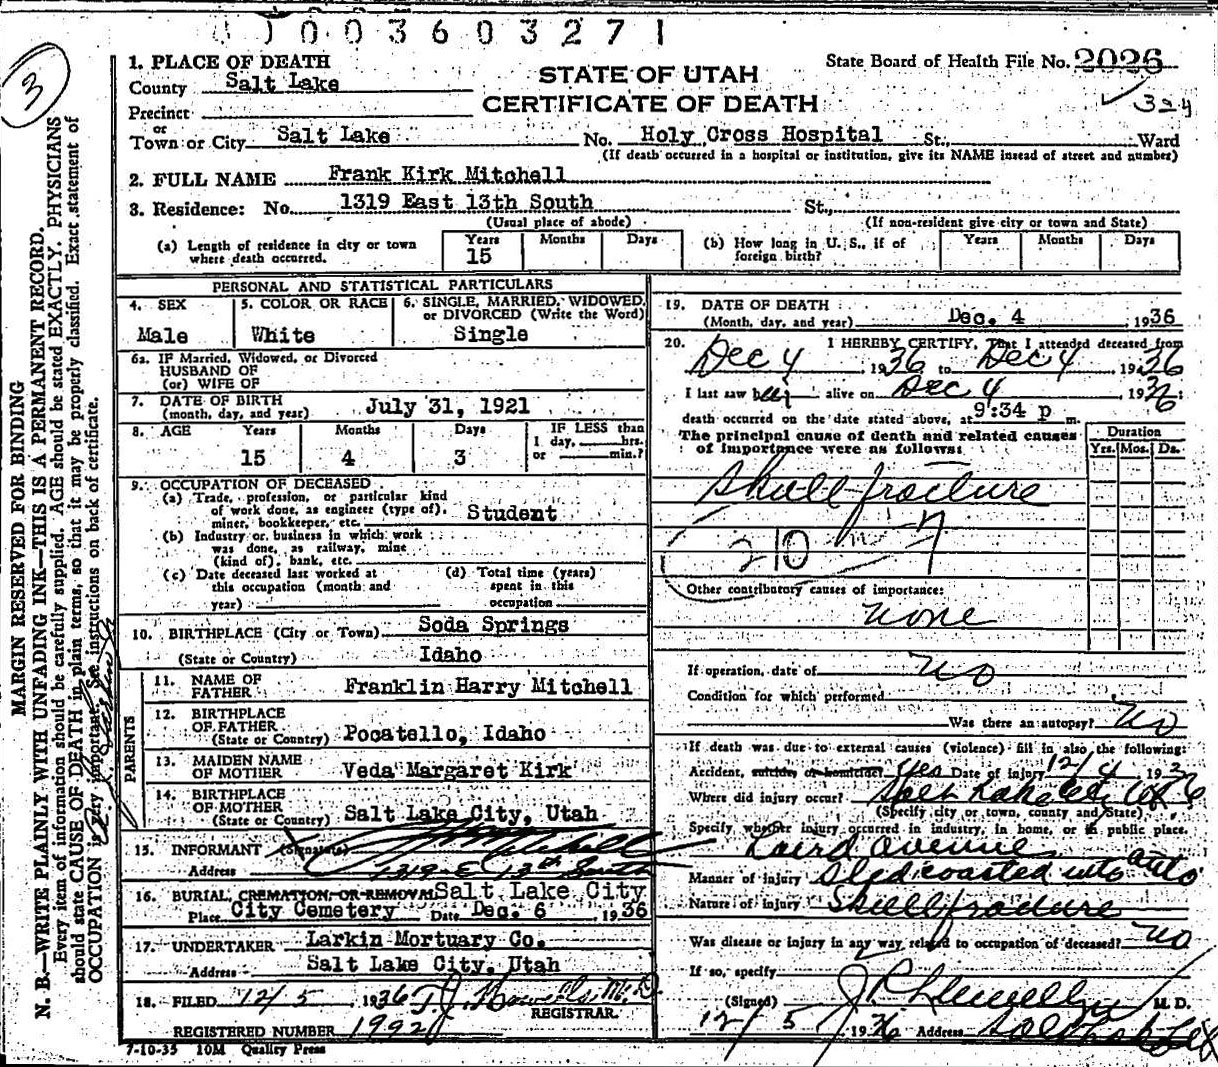 0003603271
3
1. PLACE OF DEATH
County Salt Lake
Precinct
or
Town or City Salt Lake No. Holy Cross Hospital St., Ward
(If death occurred in a hospital or institution, give its NAME insead of street and number)
STATE OF UTAH
CERTIFICATE OF DEATH
State Board of Health File No. 2026
324
2. FULL NAME Frank Kirk Mitchell
3. Residence: No. 1319 East 13th South St.,
(Usual place of abode) (If non-resident give city or town and State)
(a) Length of residence in city or town where death occurred. Years 15 Months Days
(b) How long in U. S., if of foreign birth? Years Months Days
PERSONAL AND STATISTICAL PARTICULARS
4. SEX Male
5. COLOR OR RACE White
6. SINGLE, MARRIED, WIDOWED, or DIVORCED (Write the Word) Single
6a. IF Married, Widowed, or Divorced
HUSBAND OF
(or) WIFE OF
7. DATE OF BIRTH
(month, day, and year) July 31, 1921
8. AGE Years Months Days IF LESS than
15 4 3 1 day, hrs.
or min.?
9. OCCUPATION OF DECEASED
(a) Trade, profession, or particular kind
of work done, as engineer (type of),
miner, bookkeeper, etc. Student
(b) Industry or business in which work
was done, as railway, mine
(kind of), bank, etc.
(c) Date deceased last worked at
this occupation (month and
year)
(d) Total time (years)
spent in this
occupation
10. BIRTHPLACE (City or Town) Soda Springs
(State or Country) Idaho
PARENTS
11. NAME OF
FATHER Franklin Harry Mitchell
12. BIRTHPLACE
OF FATHER
(State or Country) Pocatello, Idaho
13. MAIDEN NAME
OF MOTHER Veda Margaret Kirk
14. BIRTHPLACE
OF MOTHER
(State or Country) Salt Lake City, Utah
15. INFORMANT (Signature) Mitchell
Address 1319 E 13th South
16. BURIAL, CREMATION OR REMOVAL Salt Lake City
Place City Cemetery Date Dec. 6 , 1936
17. UNDERTAKER Larkin Mortuary Co.
Address Salt Lake City, Utah
18. FILED 12/5 , 1936 M.D.
REGISTRAR.
REGISTERED NUMBER 1992
7-10-35 10M Quality Press
19. DATE OF DEATH
(Month, day, and year) Dec. 4 , 1936
20. I HEREBY CERTIFY, That I attended deceased from
Dec 4 , 1936 to Dec 4 , 1936
I last saw him alive on Dec 4 , 1936
death occurred on the date stated above, at 9:34 p m.
The principal cause of death and related causes
of importance were as follows:
Duration
Yrs. Mos. Ds.
Skull fracture
210
Other contributory causes of importance:
none
If operation, date of no
Condition for which performed
Was there an autopsy? no
If death was due to external causes (violence) fill in also the following:
Accident, suicide, or homicide? yes Date of injury 12/4 1936
Where did injury occur? Salt Lake City
(Specify city or town, county and State)
Specify whether injury occurred in industry, in home, or in public place.
Laird Avenue
Manner of injury Sled coasted into auto
Nature of injury Skull fracture
Was disease or injury in any way related to occupation of deceased? no
If so, specify
(Signed) J P Llewellyn M. D.
12/5 1936 Address Salt Lake City
MARGIN RESERVED FOR BINDING
N. B.—WRITE PLAINLY WITH UNFADING INK—THIS IS A PERMANENT RECORD.
Every item of information should be carefully supplied. AGE should be stated EXACTLY. PHYSICIANS
should state CAUSE OF DEATH in plain terms, so that it may be properly classified. Exact statement of
OCCUPATION is very important. See instructions on back of certificate.